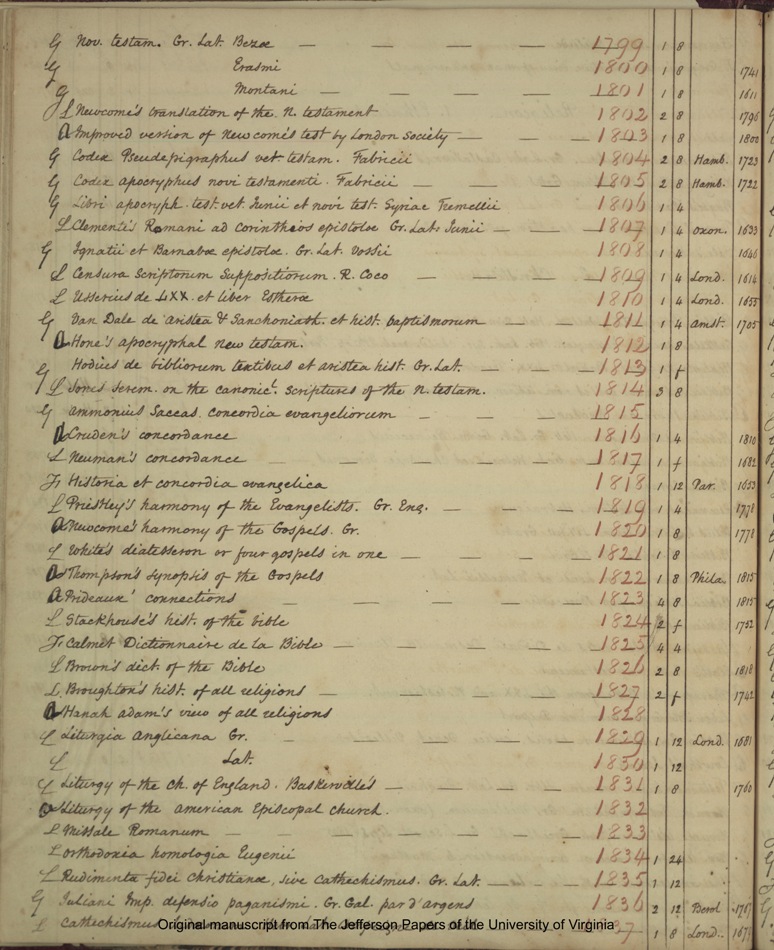 G Nov. testam. Gr. Lat. Bezae — — — — 1799 1 8
G Erasmi 1800 1 8 1741
G Montani — — — — 1801 1 8 1611
L Newcome's translation of the N. testament 1802 2 8 1796
A Improved version of Newcome's test by London Society — — 1803 1 8 1800
G Codex Pseudepigraphus vet testam. Fabricii 1804 2 8 Hamb. 1723
G Codex apocryphus novi testamenti. Fabricii — — — 1805 2 8 Hamb. 1722
G Libri apocryph. test. vet. Junii et novi test. Syriae Tremellii 1806 1 4
L Clementis Romani ad corintheos epistolae Gr. Lat. Junii — — 1807 1 4 Oxon. 1633
G Ignatii et Barnabae epistolae. Gr. Lat. Vossii 1808 1 4 1646
L Censura Scriptorum Suppositiorum. R. Coco — — — 1809 1 4 Lond. 1614
L Usserius de LXX. et liber Estherae 1810 1 4 Lond. 1655
G Van Dale de Aristea & Sanchoniath. et hist. baptismorum — — 1811 1 4 Amst. 1705
A Hone's apocryphal new testam. 1812 1 8
G Hodius de bibliorum textibus et aristea hist. Gr. Lat. — — 1813 1 f
L Jones serem. on the canonicl. scriptures of the N. testam. 1814 3 8
G Ammonius Saccas. concordia evangeliorum — — — 1815
A Cruden's concordance 1816 1 4 1810
L Neuman's concordance — — — — — 1817 1 f 1682
Fr Historia et concordia evangelica 1818 1 12 Par. 1653
L Priestley's harmony of the Evangelists. Gr. Eng. — — — 1819 1 4
A Newcome's harmony of the Gospels. Gr. 1820 1 8 1778
L White's diatesseron or four gospels in one — — — — 1821 1 8
A Thompson's synopsis of the Gospels 1822 1 8 Phila. 1815
A Prideaux' connections — — — — — — 1823 4 8 1815
L Stackhouse's hist. of the bible 1824 2 f 1752
Fr Calmet Dictionnaire de la Bible — — — — — 1825 4 4
L Brown's dict. of the Bible 1826 2 8 1818
L Broughton's hist. of all religions — — — — — 1827 2 f 1742
A Hanah Adam's view of all religions 1828
L Liturgia Anglicana Gr. — — — — — 1829 1 12 Lond. 1681
L Lat. 1830 1 12
L Liturgy of the Ch. of England. Baskerville's — — — — 1831 1 8 1760
A Liturgy of the American Episcopal church. 1832
L Missale Romanum — — — — — — 1833
L Orthodoxia homologia Eugenii 1834 1 24
L Rudimenta fidei christianae, sive Cathechismus. Gr. Lat. — — 1835 1 12
G Juliani Imp. defensio paganismi. Gr. Gal. par d'Argens 1836 2 12 Berol 1767
L Cathechismus 1 8 Lond.
Original manuscript from The Jefferson Papers of the University of Virginia